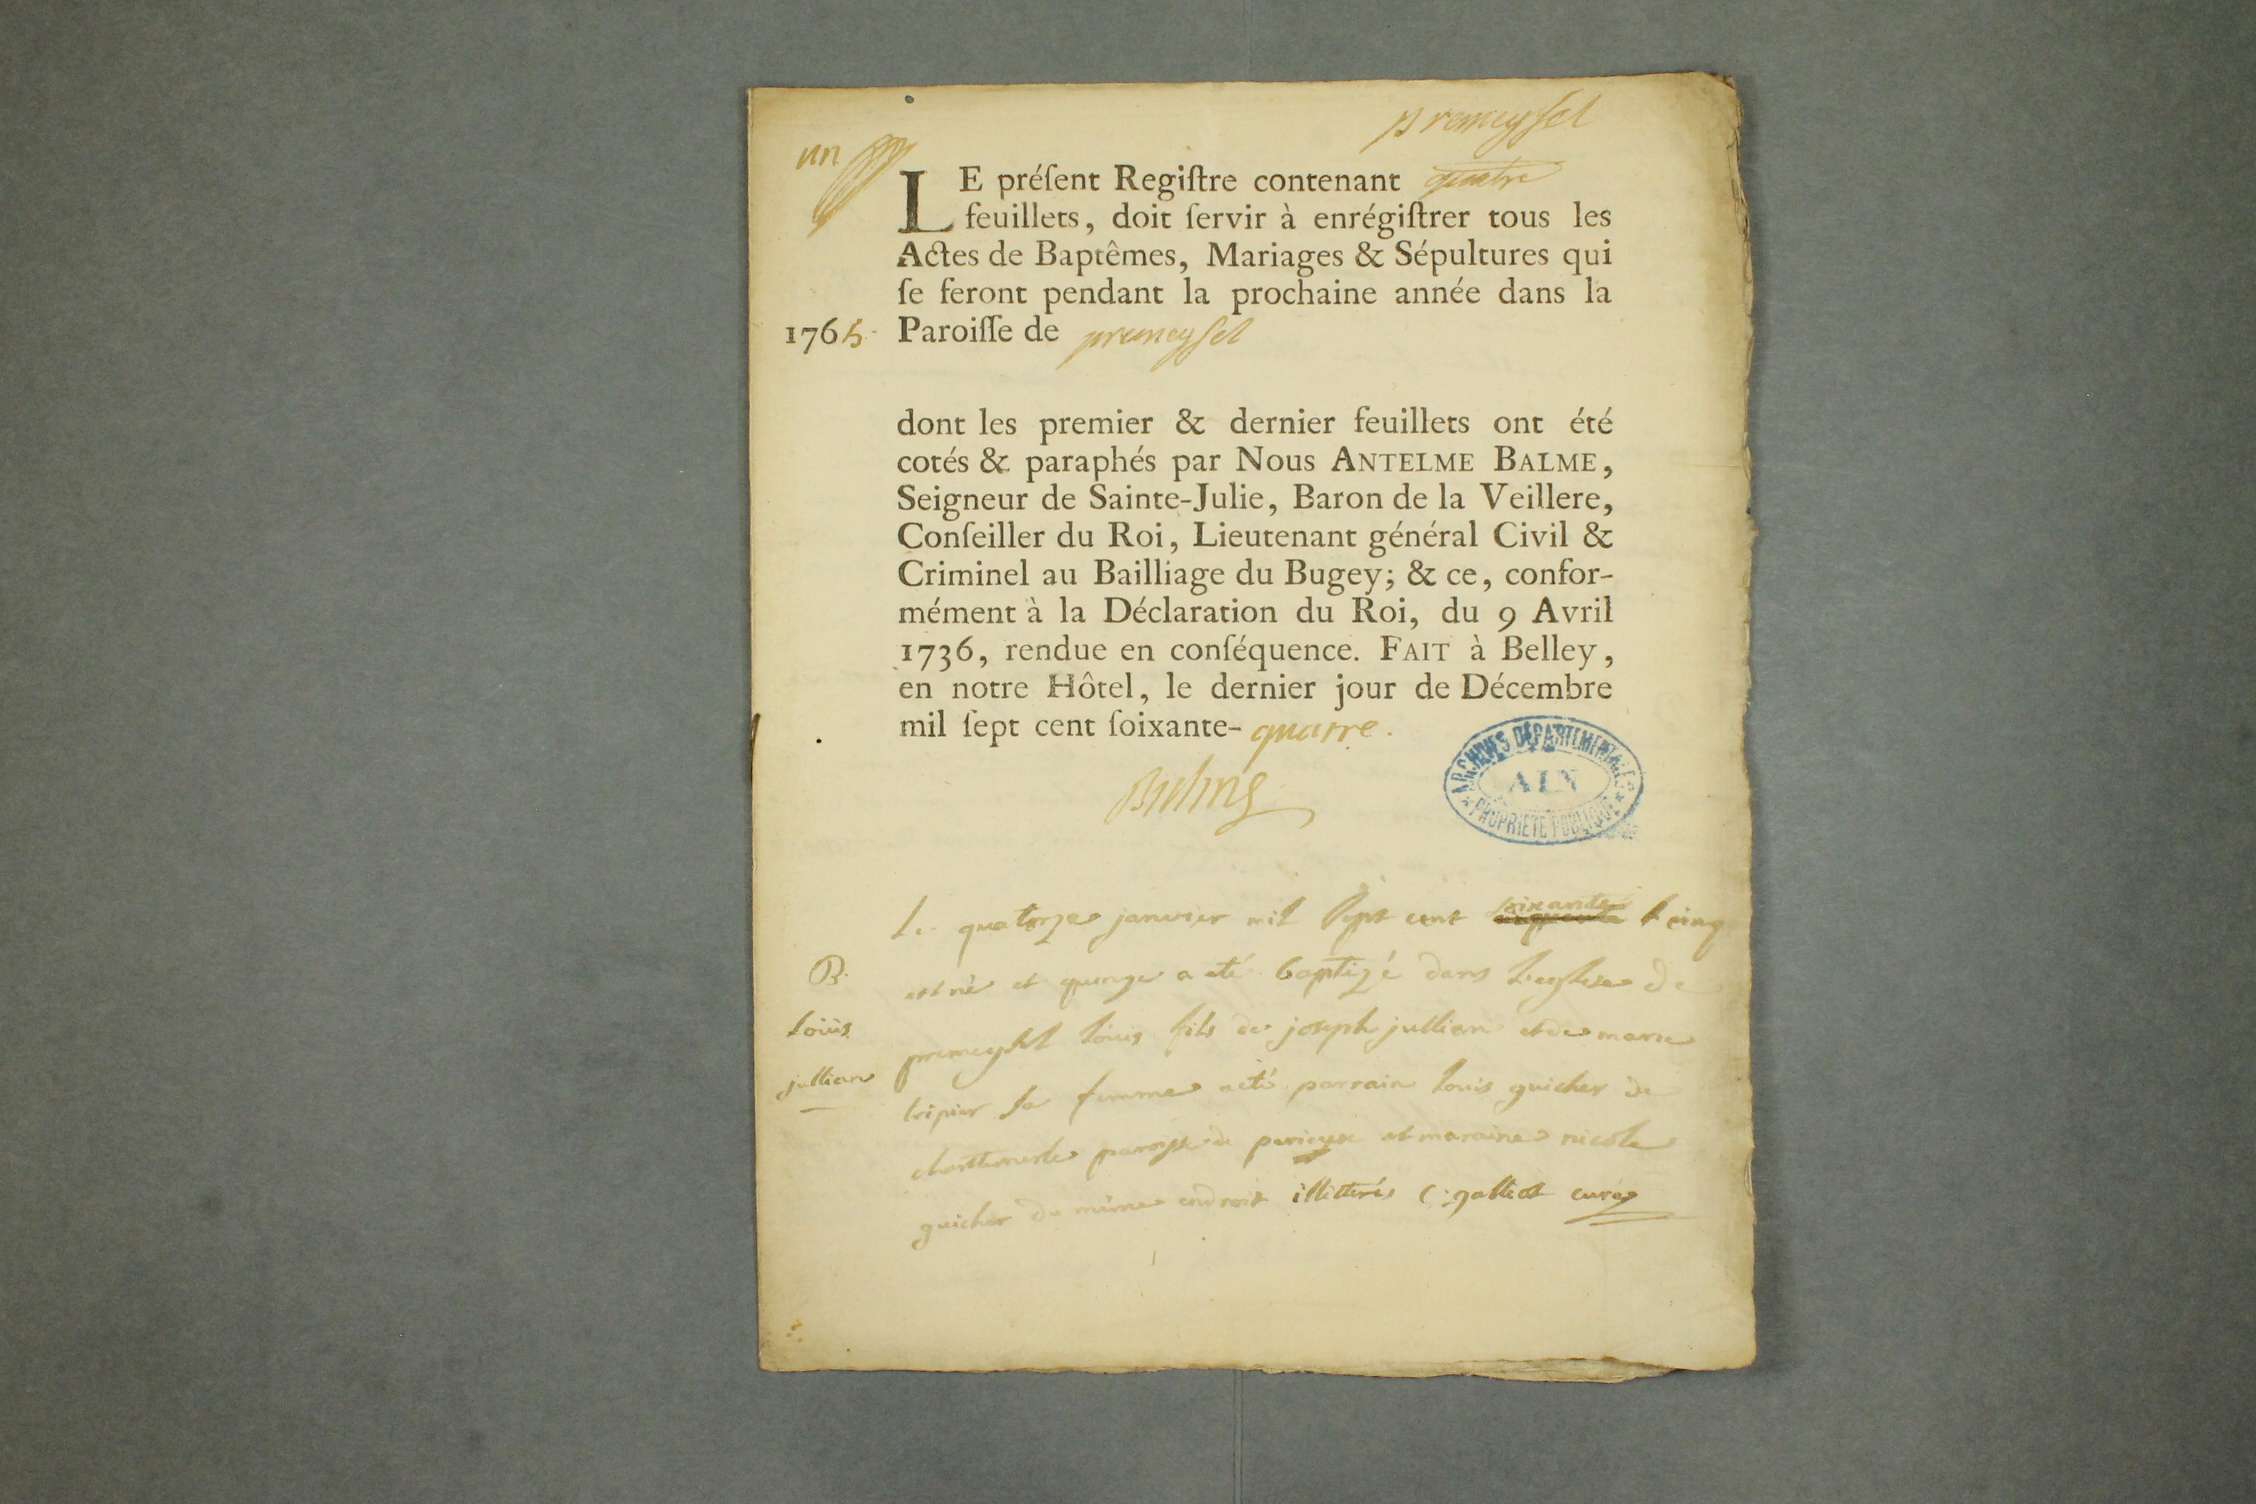 premeysel
un
LE préſent Regiſtre contenant quatre
feuillets, doit ſervir à enrégiſtrer tous les
Actes de Baptêmes, Mariages & Sépultures qui
ſe feront pendant la prochaine année dans la
1765. Paroiſſe de premeysel
dont les premier & dernier feuillets ont été
cotés & paraphés par Nous ANTELME BALME,
Seigneur de Sainte-Julie, Baron de la Veillere,
Conſeiller du Roi, Lieutenant général Civil &
Criminel au Bailliage du Bugey; & ce, confor-
mément à la Déclaration du Roi, du 9 Avril
1736, rendue en conſéquence. FAIT à Belley,
en notre Hôtel, le dernier jour de Décembre
mil ſept cent ſoixante-quatre.
Balme
ARCHIVES DÉPARTEMENTALES
AIN
PROPRIÉTÉ PUBLIQUE
Le quatorze janvier mil sept cent soixante & cinq
est né et quinze a eté baptizé dans l'eglise de
premeysel loüis fils de joseph jullian et de marie
tripier sa femme a eté parrain louis guicher de
paroisse de et maraine nicole
guicher du même endroit illitterés curé
B.
loüis
jullian